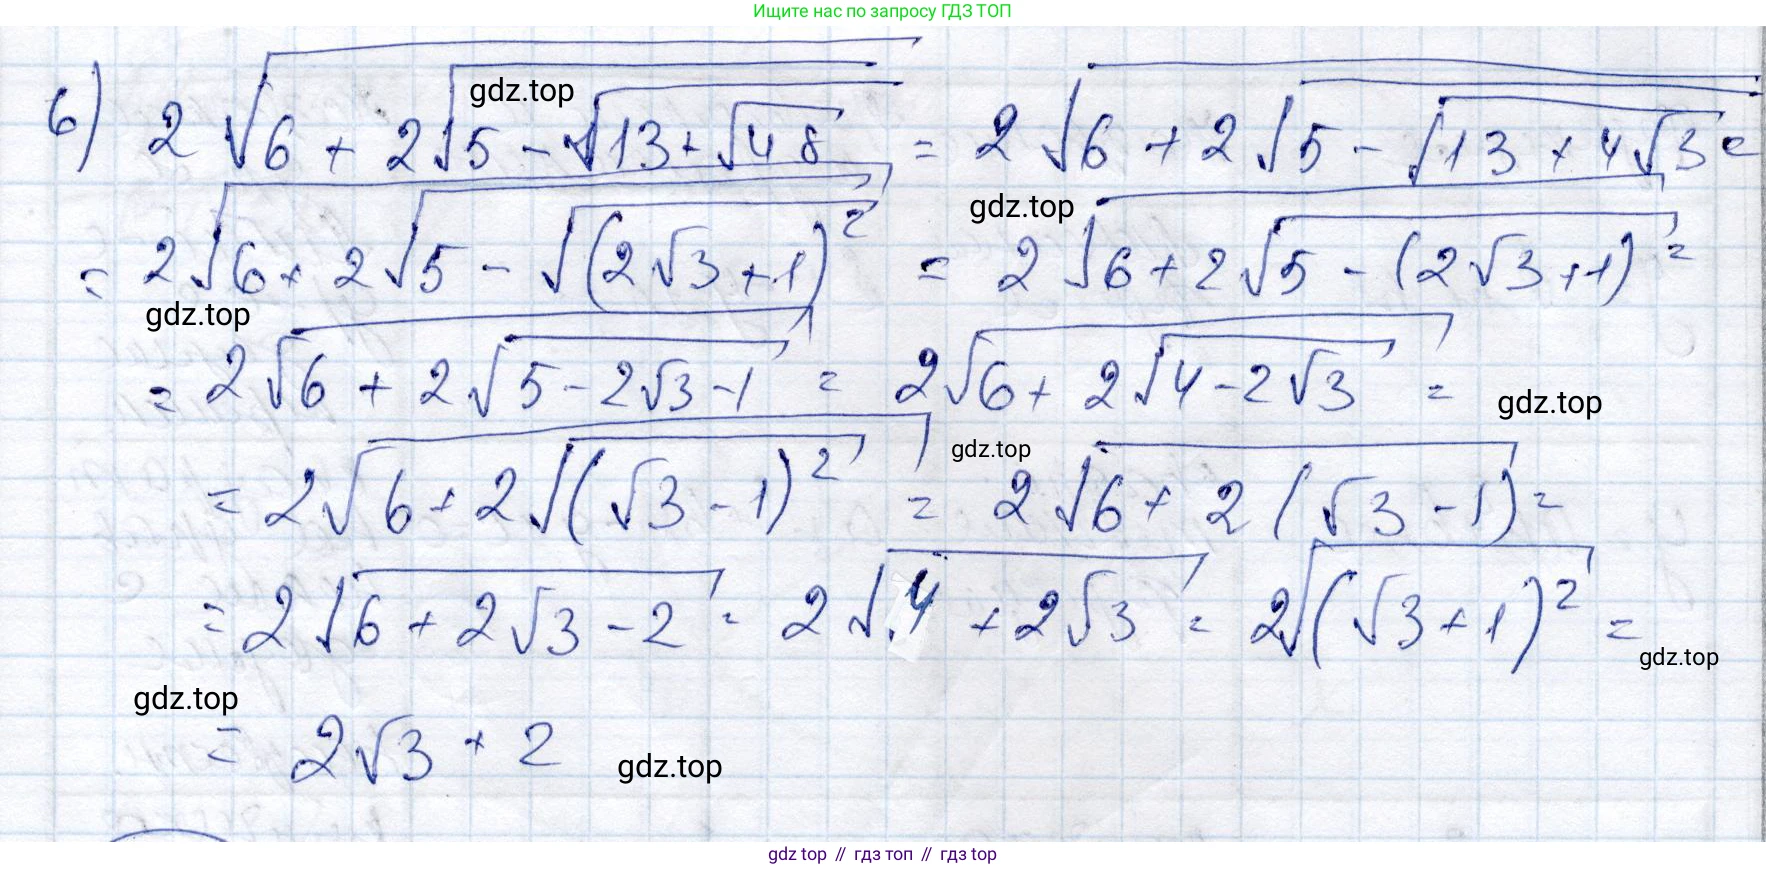 Ищите нас по запросу ГДЗ ТОП
б) 2√(6 + 2√(5 - √(13 + √48))) = 2√(6 + 2√(5 - √(13 + 4√3))) =
gdz.top
= 2√(6 + 2√(5 - √((2√3 + 1)²))) = 2√(6 + 2√(5 - (2√3 + 1))) =
gdz.top
gdz.top
= 2√(6 + 2√(5 - 2√3 - 1)) = 2√(6 + 2√(4 - 2√3)) =
gdz.top
= 2√(6 + 2√((√3 - 1)²)) = 2√(6 + 2(√3 - 1)) =
gdz.top
= 2√(6 + 2√3 - 2) = 2√(4 + 2√3) = 2√((√3 + 1)²) =
gdz.top
gdz.top
= 2√3 + 2
gdz.top
gdz top // гдз топ // гдз top